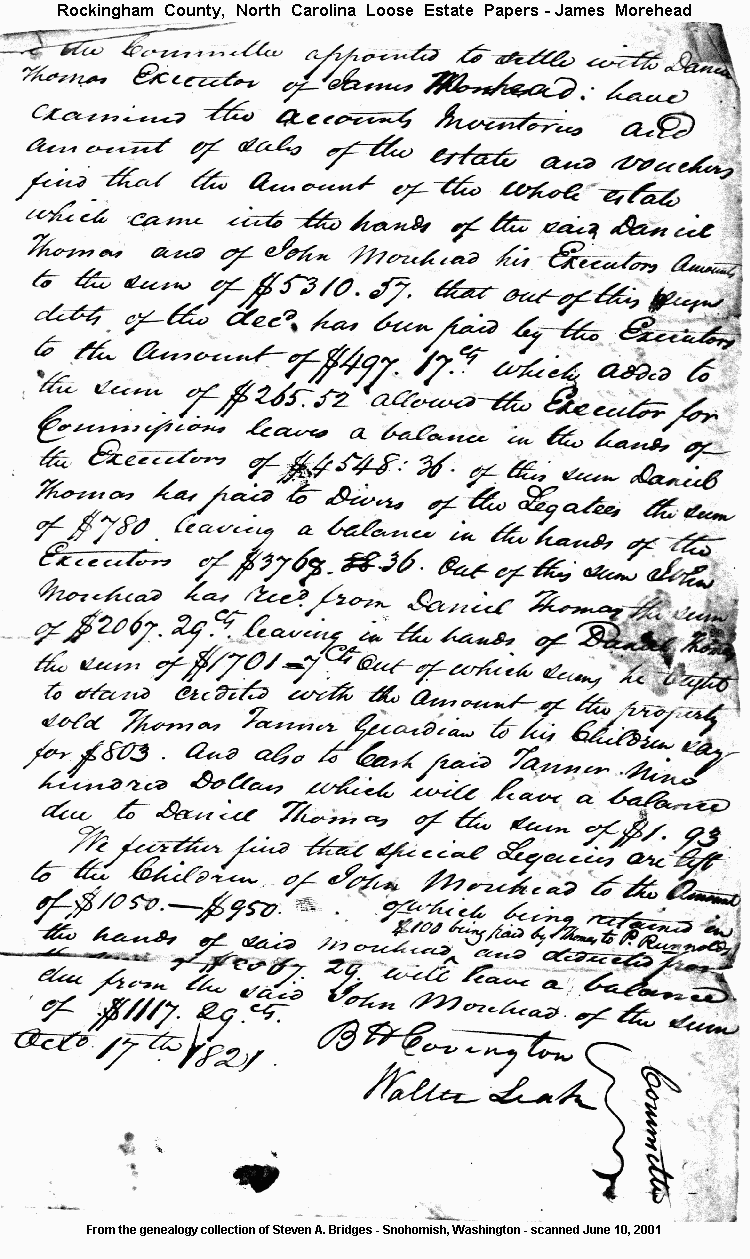 Rockingham County, North Carolina Loose Estate Papers - James Morehead
the Committee appointed to settle with Daniel
Thomas Executor of James Morehead: have
examined the accounts Inventories and
amount of sales of the estate and vouchers
find that the Amount of the whole estate
which came into the hands of the said Daniel
Thomas and of John Morehead his Executors Amounts
to the sum of $5310.57. that out of this sum
debts of the decd. has been paid by the Executors
to the Amount of $497.17.cts which, added to
the sum of $265.52 allowed the Executor for
Commissions leaves a balance in the hands of
the Executors of $4548:36. of this sum Daniel
Thomas has paid to Divers of the Legatees the sum
of $780 leaving a balance in the hands of the
Executors of $3768.36. Out of this sum John
Morehead has recd. from Daniel Thomas the sum
of $2067.29.cts. leaving in the hands of Daniel Thomas
the sum of $1701-7Cts Out of which sum, he ought
to stand credited with the Amount of the property
sold Thomas Tanner Guardian to his Children say
for $803. And also to Cash paid Tanner Nine
hundred Dollars which will leave a balance
due to Daniel Thomas of the sum of $1.93
We further find that special Legacies are left
to the Children of John Morehead to the Amount
of $1050.—$950. of which being retained in
$100 being paid by Thomas to P. Runnolds
the hands of said Morehead, and deducted from
the sum of $2067.29 will leave a balance
due from the said John Morehead of the sum
of $1117.29.cts.
Octo. 17th 1821. B H Covington
Walter Leak
Committee
From the genealogy collection of Steven A. Bridges - Snohomish, Washington - scanned June 10, 2001